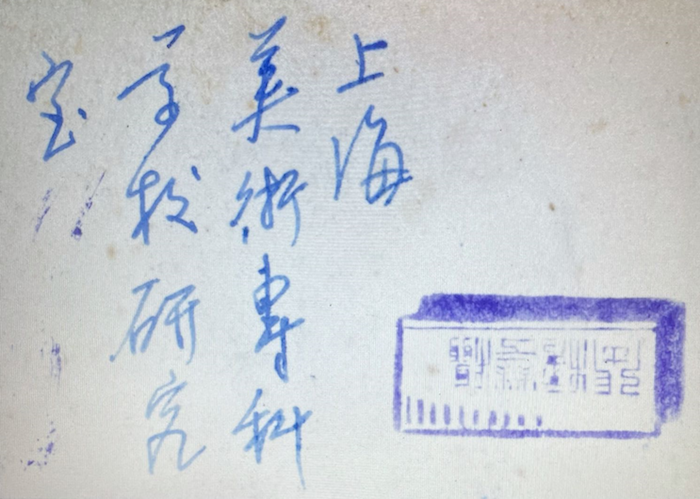 上海
美術專科
学校研究
室